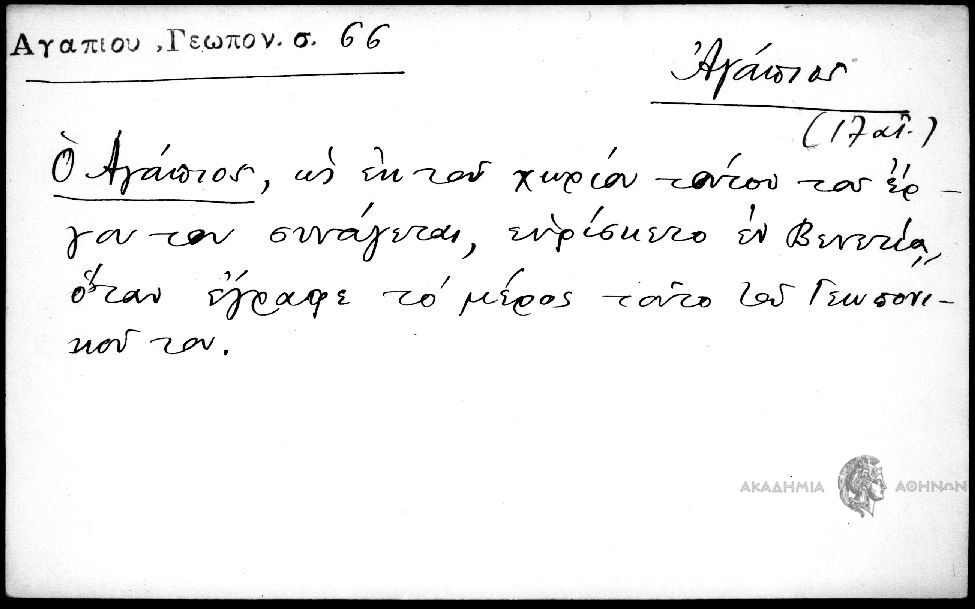 Αγαπιου , Γεωπον. σ. 66
Ἀγάπιος
(17 αἰ.)
Ὁ Ἀγάπιος, ὡς ἐκ τοῦ χωρίου τούτου τοῦ ἔρ-
γου του συνάγεται, εὑρίσκετο ἐν Βενετίᾳ,
ὅταν ἔγραφε τὸ μέρος τοῦτο τοῦ Γεωπονι-
κοῦ του.
ΑΚΑΔΗΜΙΑ ΑΘΗΝΩΝ